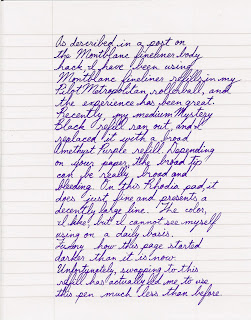 As described in a post on
the Montblanc fineliner body
hack, I have been using
Montblanc fineliner refills in my
Pilot Metropolitan rollerball, and
the experience has been great.
Recently, my medium Mystery
Black refill ran out, and I
replaced it with a broad
Amethyst Purple refill. Depending
on your paper, the broad tip
can be really broad and
bleeding. On this Rhodia pad, it
does just fine and presents a
decently large line. The color,
I like, but I cannot see myself
using on a daily basis.
Funny how this page started
darker than it is now.
Unfortunately, swapping to this
refill has actually led me to use
this pen much less than before.